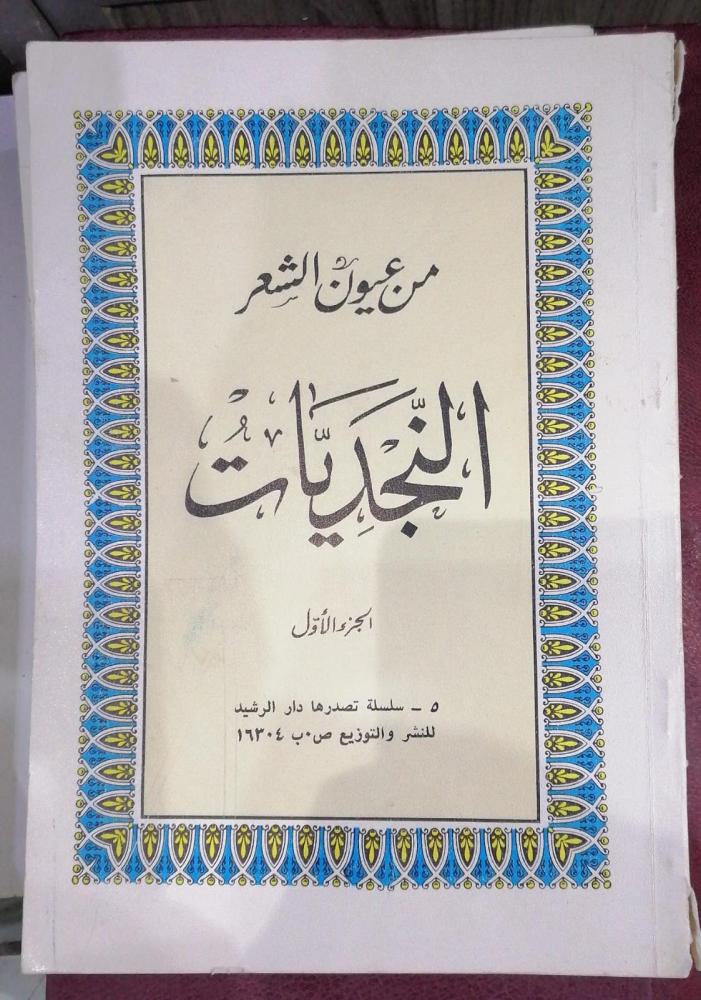 من عيون الشعر
النَّجْدِيَّاتُ
الجزء الأوّل
٥ - سلسلة تصدرها دار الرشيد
للنشر والتوزيع ص.ب ١٦٣٠٤